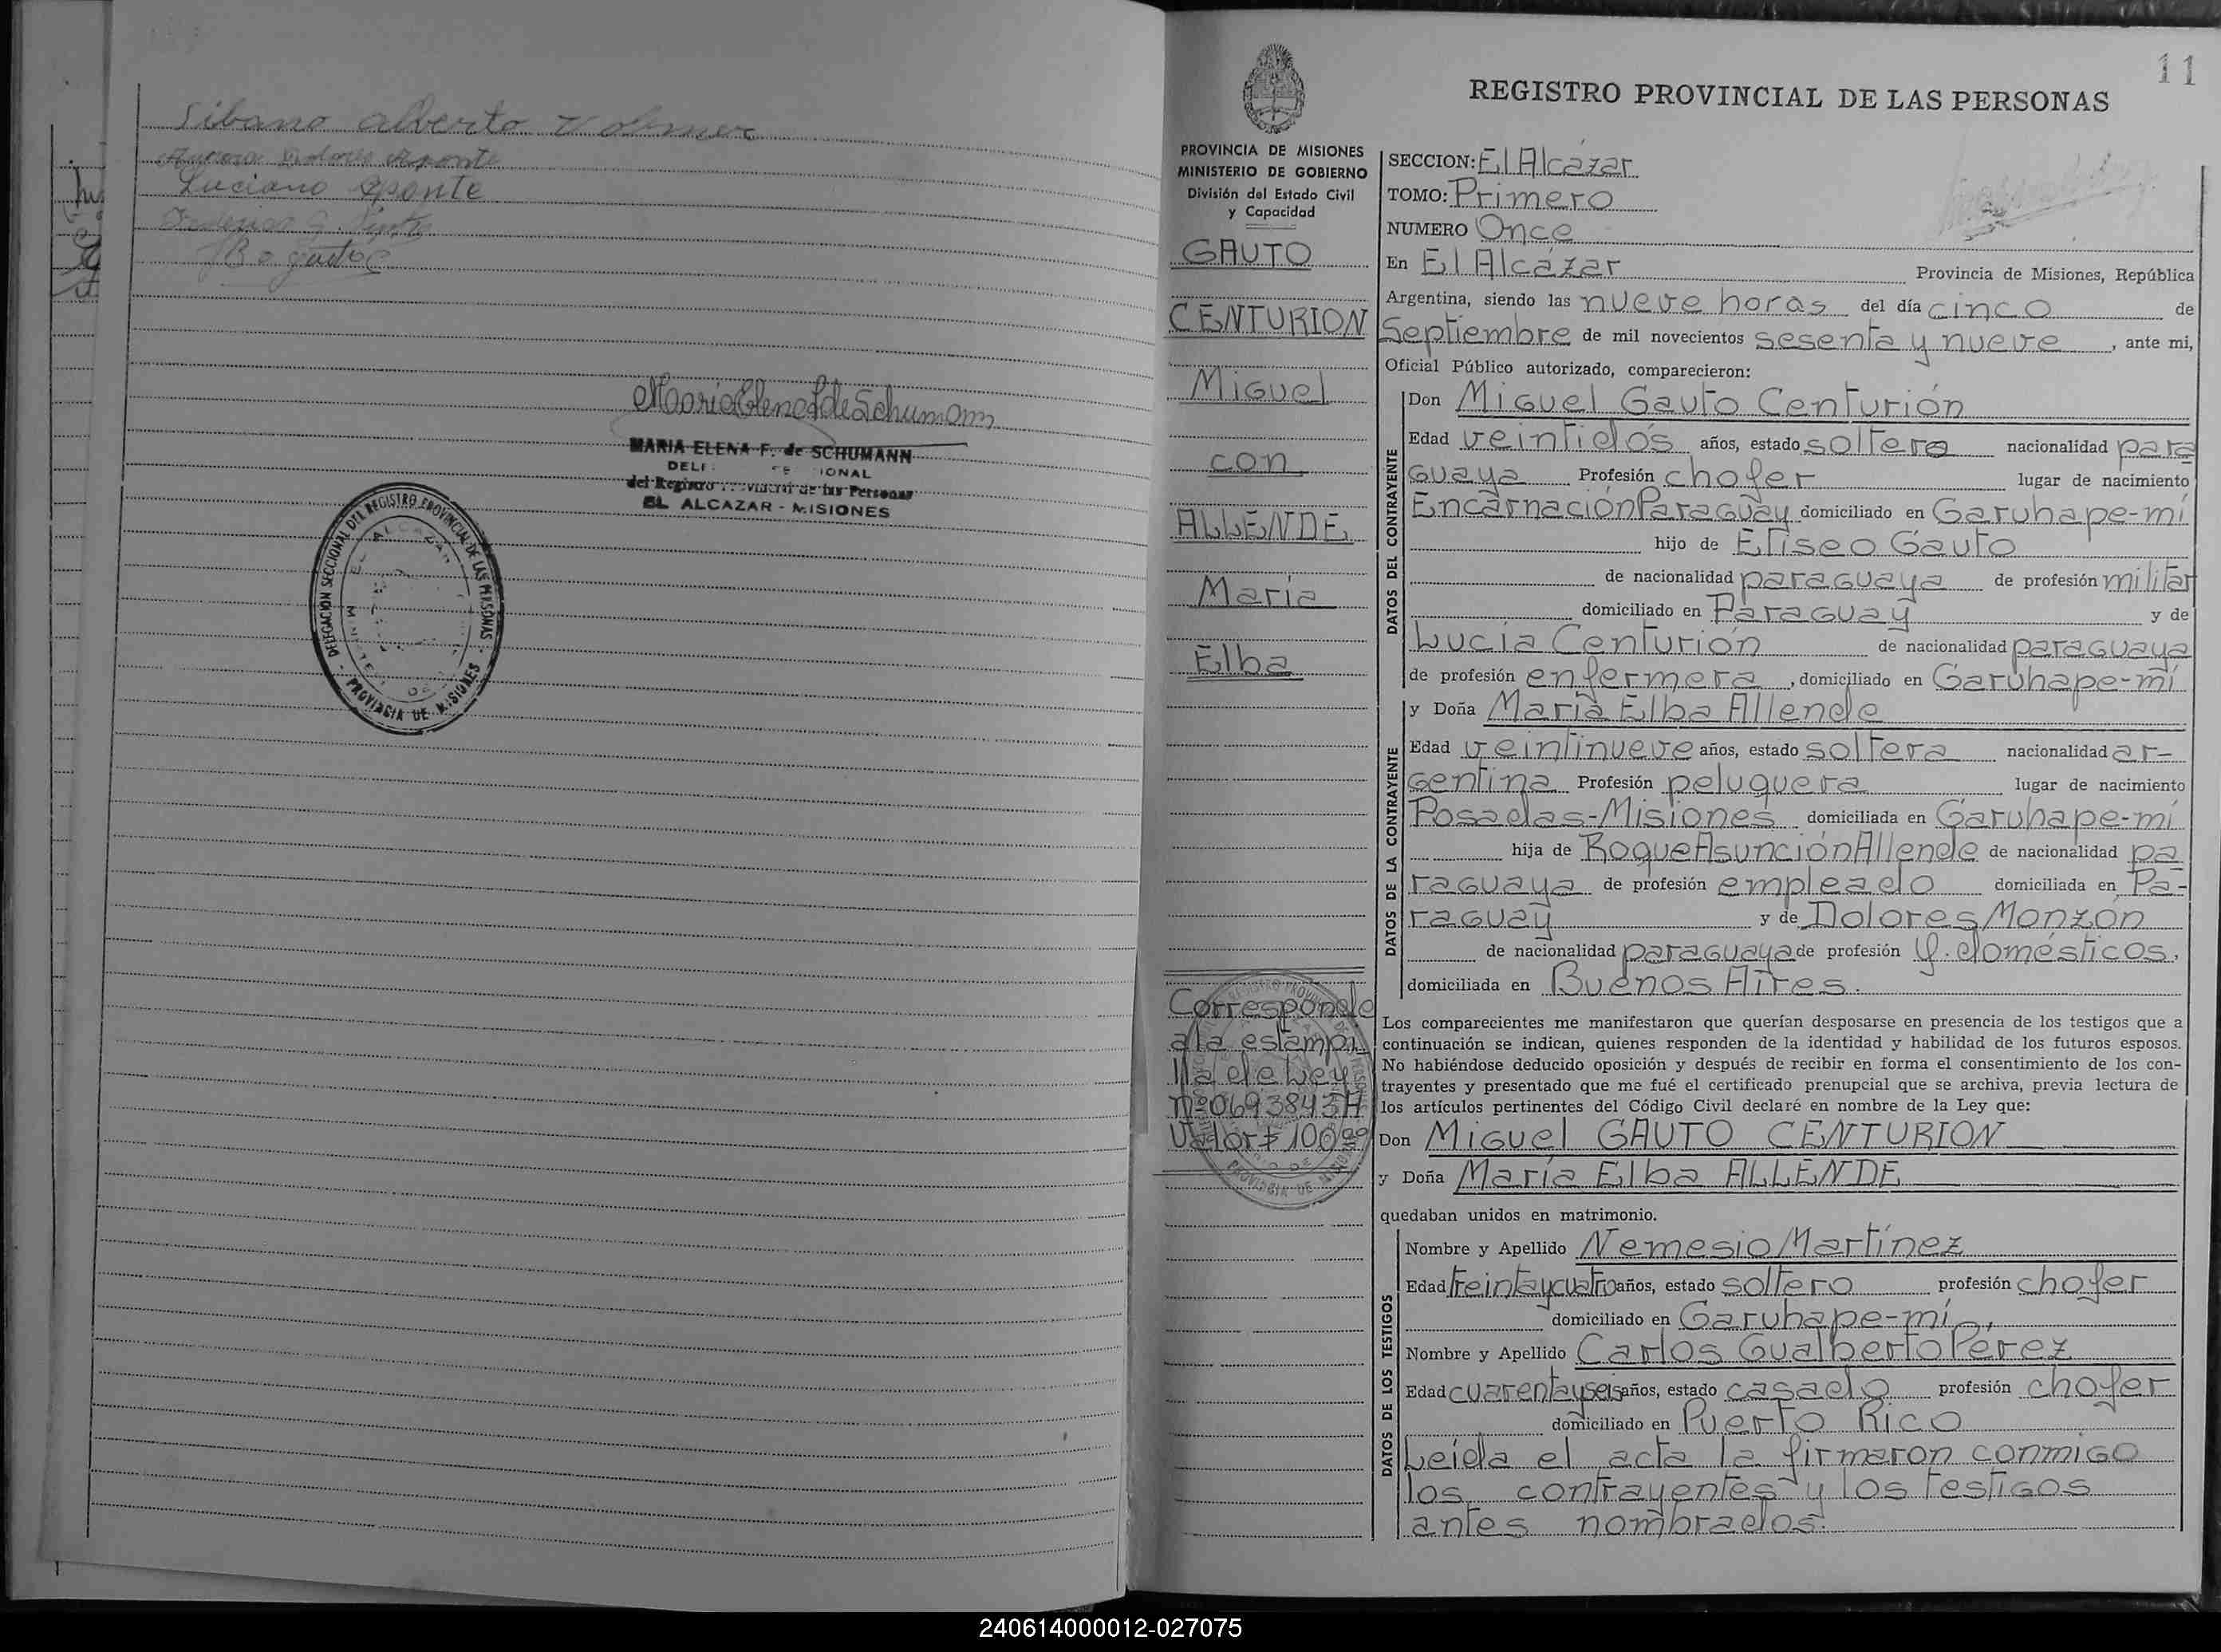 Libano Alberto Volmer
Aurora Dolores Aponte
Luciano Aponte
Maria Elena F de Schumann
MARIA ELENA F. de SCHUMANN
del Registro Provincial de las Personas
EL ALCAZAR - MISIONES
DELEGACIÓN SECCIONAL DEL REGISTRO PROVINCIAL DE LAS PERSONAS
EL ALCAZAR
PROVINCIA DE MISIONES
11
REGISTRO PROVINCIAL DE LAS PERSONAS
PROVINCIA DE MISIONES
MINISTERIO DE GOBIERNO
División del Estado Civil
y Capacidad
GAUTO
CENTURION
Miguel
con
ALLENDE
María
Elba
Corresponde
a la estampi
lla de Ley
nº 0693843A
Valor $ 100,00
SECCION: El Alcázar
TOMO: Primero
NUMERO Once
En El Alcázar Provincia de Misiones, República
Argentina, siendo las nueve horas del día cinco de
Septiembre de mil novecientos sesenta y nueve, ante mi,
Oficial Público autorizado, comparecieron:
DATOS DEL CONTRAYENTE
Don Miguel Gauto Centurión
Edad veintidós años, estado soltero nacionalidad para
guaya Profesión chofer lugar de nacimiento
Encarnación Paraguay domiciliado en Garuhape-mí
hijo de Eliseo Gauto
de nacionalidad paraguaya de profesión militar
domiciliado en Paraguay y de
Lucía Centurión de nacionalidad paraguaya
de profesión enfermera, domiciliado en Garuhape-mí
DATOS DE LA CONTRAYENTE
y Doña María Elba Allende
Edad veintinueve años, estado soltera nacionalidad ar-
gentina Profesión peluquera lugar de nacimiento
Posadas-Misiones domiciliada en Garuhape-mí
hija de Roque Asunción Allende de nacionalidad pa
raguaya de profesión empleado domiciliada en Pa-
raguay y de Dolores Monzón
de nacionalidad paraguaya de profesión q. domésticos,
domiciliada en Buenos Aires.
Los comparecientes me manifestaron que querían desposarse en presencia de los testigos que a
continuación se indican, quienes responden de la identidad y habilidad de los futuros esposos.
No habiéndose deducido oposición y después de recibir en forma el consentimiento de los con-
trayentes y presentado que me fué el certificado prenupcial que se archiva, previa lectura de
los artículos pertinentes del Código Civil declaré en nombre de la Ley que:
Don Miguel GAUTO CENTURION
y Doña María Elba ALLENDE
quedaban unidos en matrimonio.
DATOS DE LOS TESTIGOS
Nombre y Apellido Nemesio Martínez
Edad treinta y cuatro años, estado soltero profesión chofer
domiciliado en Garuhape-mí,
Nombre y Apellido Carlos Gualberto Pérez
Edad cuarenta y seis años, estado casado profesión chofer
domiciliado en Puerto Rico
Leída el acta la firmaron conmigo
los contrayentes y los testigos
antes nombrados.
240614000012-027075